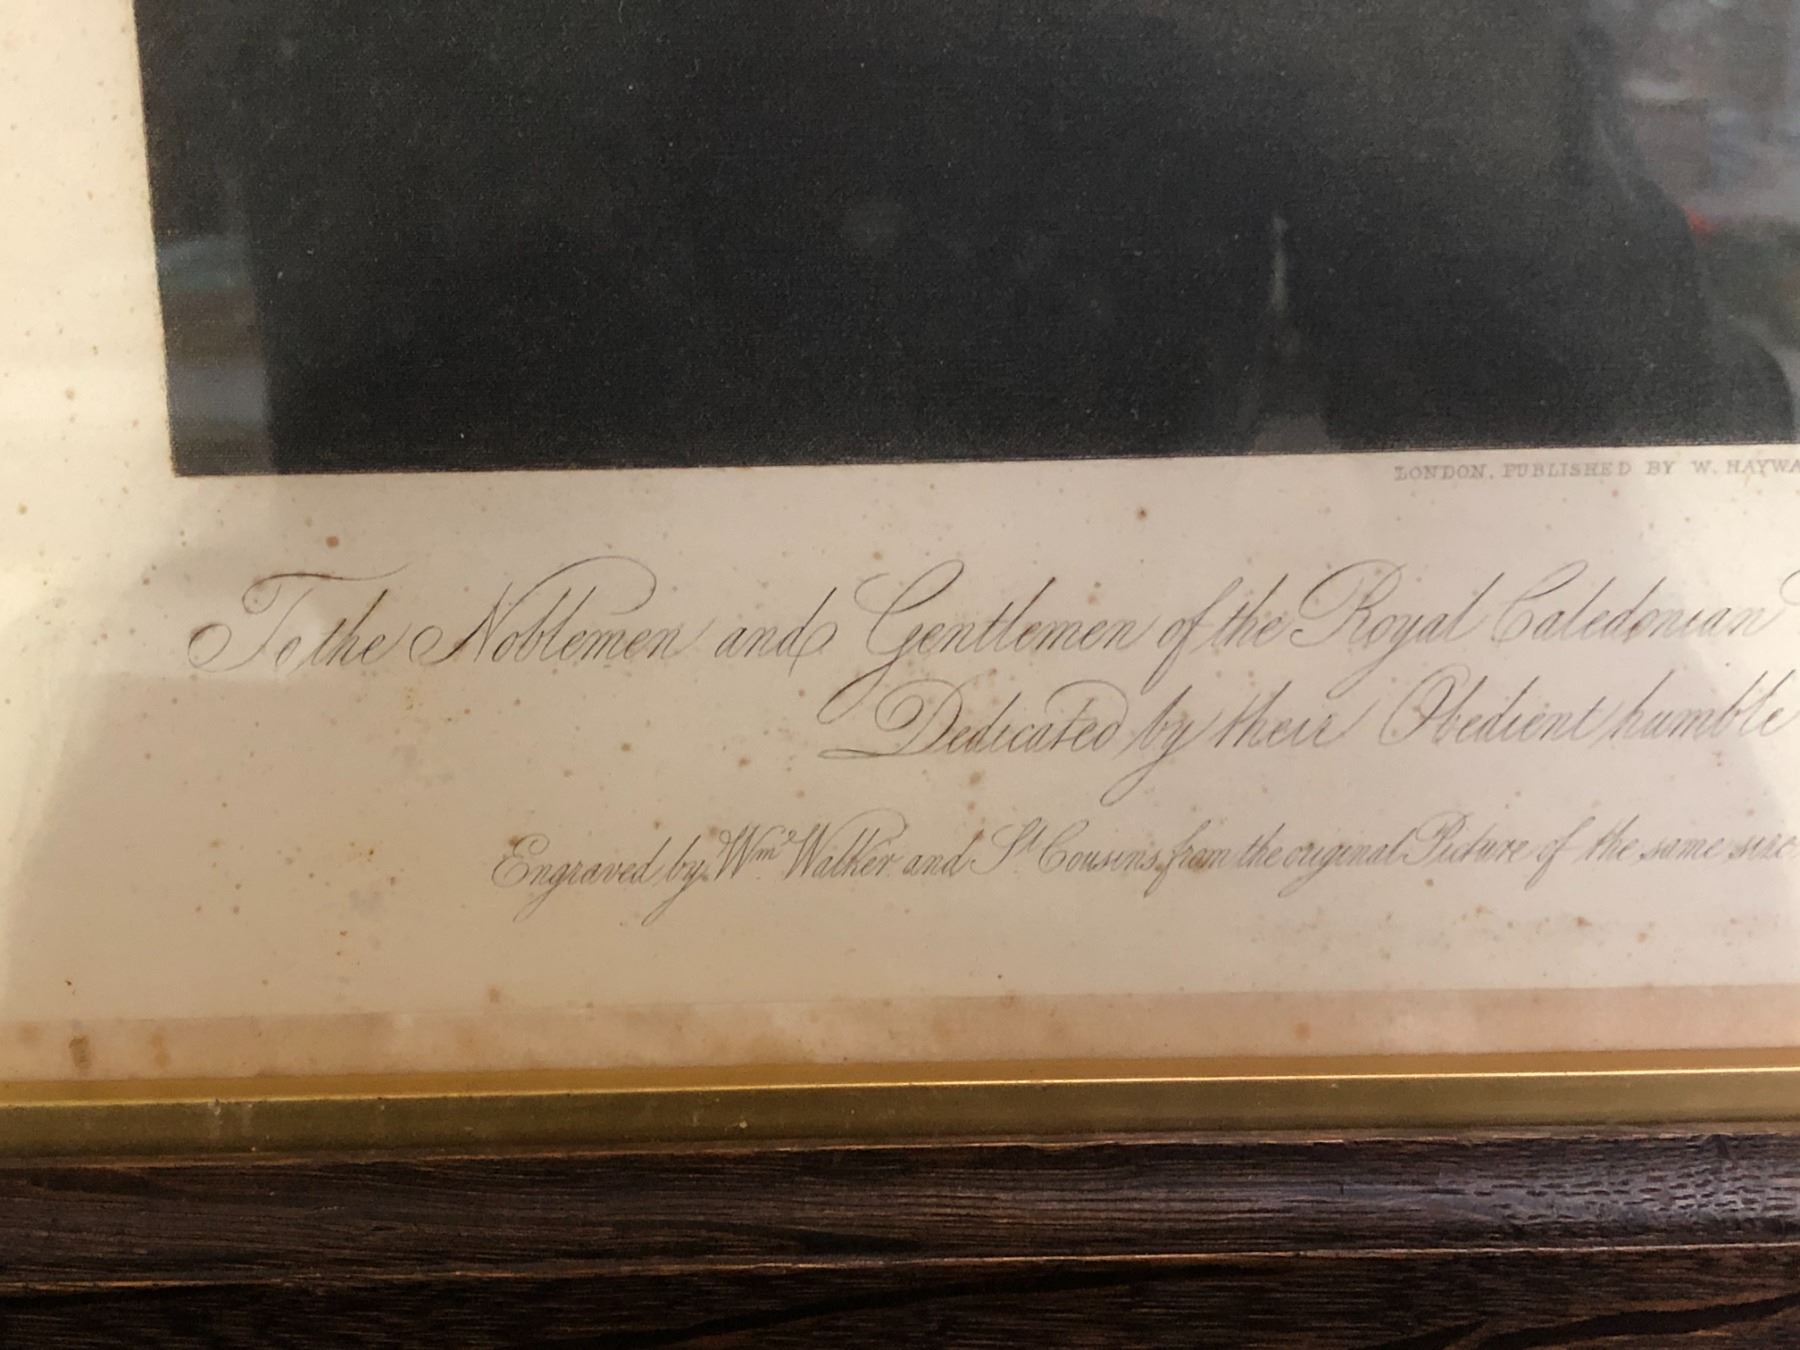 LONDON, PUBLISHED BY W. HAYWA
To the Noblemen and Gentlemen of the Royal Caledonian
Dedicated by their Obedient humble
Engraved by Wm. Walker and St. Cousins, from the original Picture of the same size